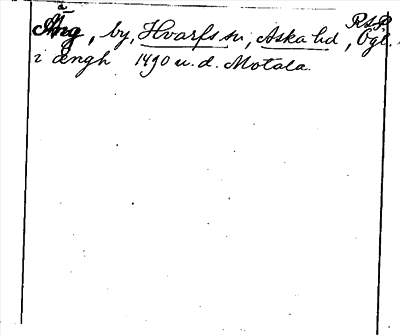 Äng, by, Hvarfs sn, Aska hd, Ögl.
i ængh 1490 u. d. Motala.